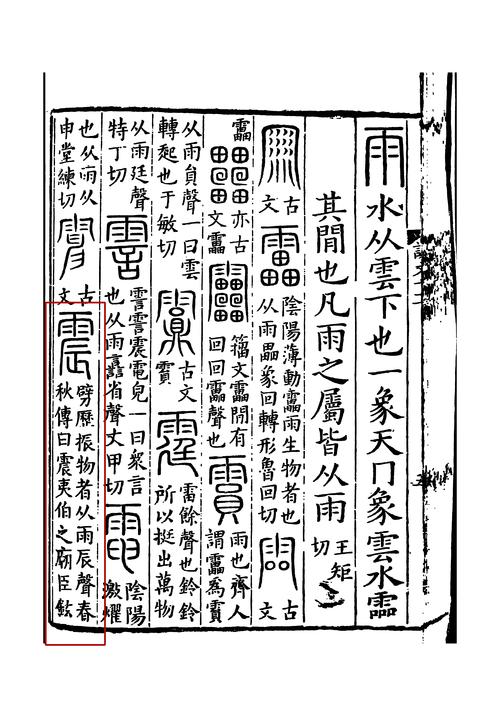 雨 水从雲下也一象天冂象雲水霝
其閒也凡雨之屬皆从雨 王矩切
古文 靁 陰陽薄動靁雨生物者也从雨畾象回轉形魯回切 古文
靁 亦古文靁 籒文靁閒有回回靁聲也 霣 雨也齊人謂靁爲霣
从雨員聲一曰雲轉起也于敏切 古文霣 霆 雷餘聲也鈴鈴所以挺出萬物
从雨廷聲特丁切 霅 霅霅震電皃一曰眾言也从雨譶省聲丈甲切 電 陰陽激燿
也从雨从申堂練切 古文 震 劈歷振物者从雨辰聲春秋傳曰震夷伯之廟臣鉉